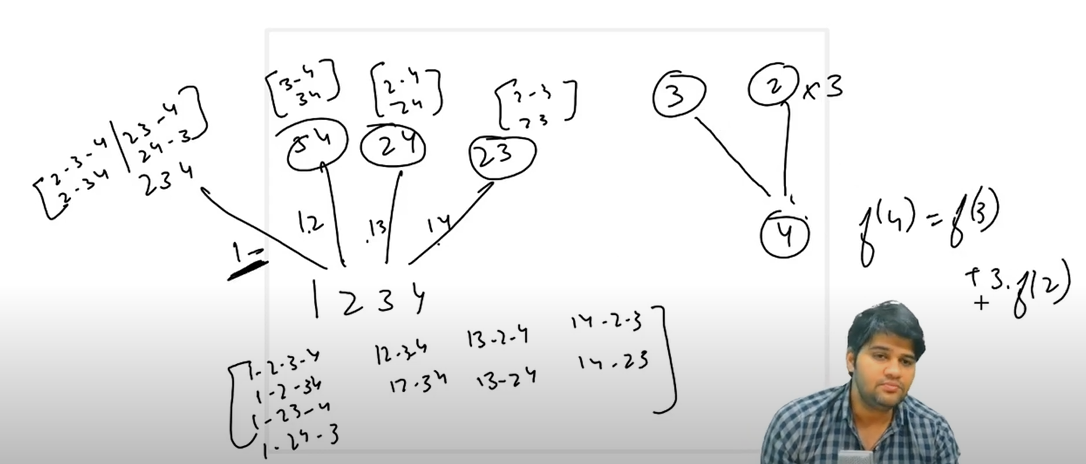 [2-3-4 | 23-4
2-34 | 24-3]
234
[3-4
34]
34
[2-4
24]
24
[2-3
23]
23
1-
12
13
14
1 2 3 4
[1-2-3-4 12-3-4 13-2-4 14-2-3
1-2-34 12-34 13-24 14-23
1-23-4
1-24-3]
3
2 x 3
4
f(4) = f(3)
+ 3. f(2)
+